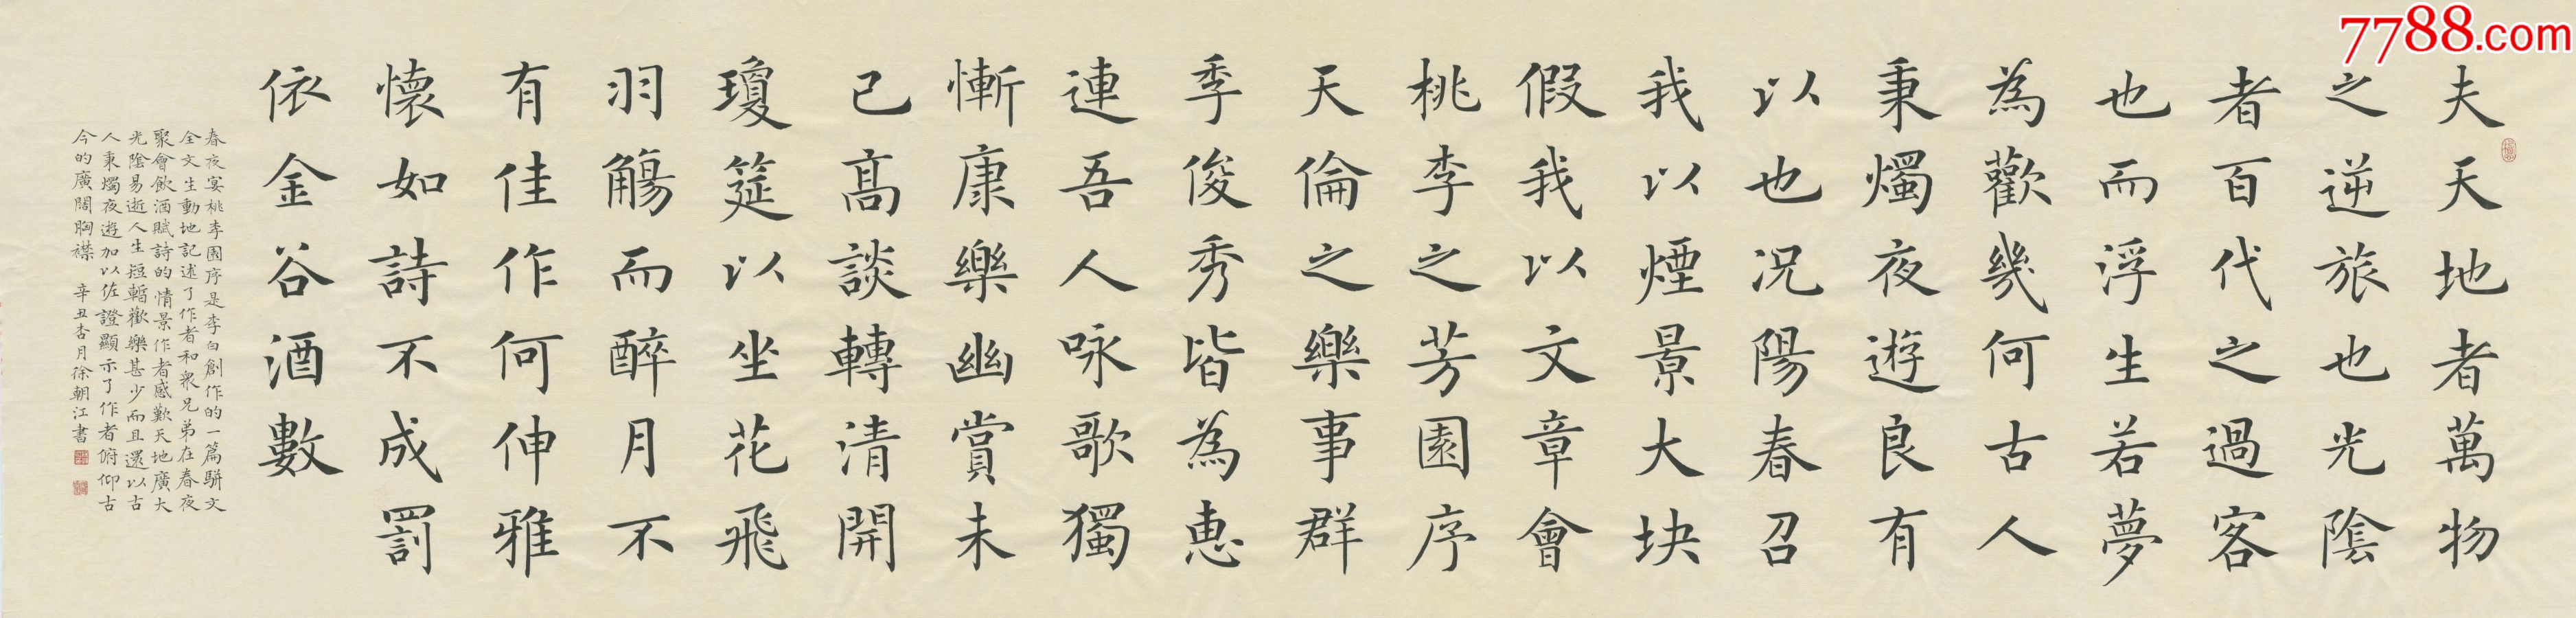 夫天地者萬物
之逆旅也光陰
者百代之過客
也而浮生若夢
為歡幾何古人
秉燭夜遊良有
以也况陽春召
我以煙景大块
假我以文章會
桃李之芳園序
天倫之樂事群
季俊秀皆為惠
連吾人咏歌獨
慚康樂幽賞未
已高談轉清開
瓊筵以坐花飛
羽觴而醉月不
有佳作何伸雅
懷如詩不成罰
依金谷酒數
春夜宴桃李園序是李白創作的一篇駢文
全文生動地記述了作者和衆兄弟在春夜
聚會飲酒賦詩的情景作者感歎天地廣大
光陰易逝人生短暫歡樂甚少而且還以古
人秉燭夜遊加以佐證顯示了作者俯仰古
今的廣闊胸襟 辛丑杏月徐朝江書
7788.com